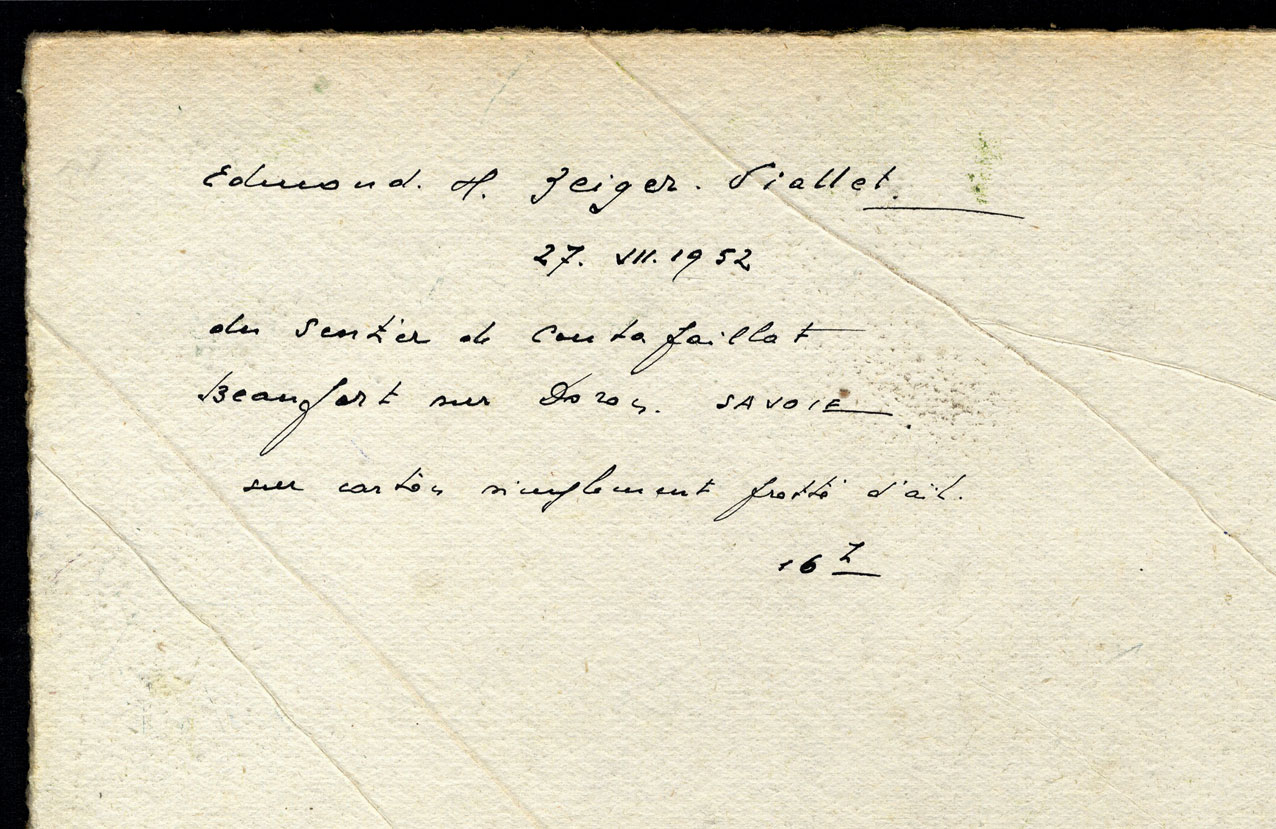 Edmond. H. Zeiger. Viallet.
27. VII. 1952
du sentier de Contafaillat
Beaufort sur Doron. SAVOIE.
sur carton simplement frotté d'ail.
16